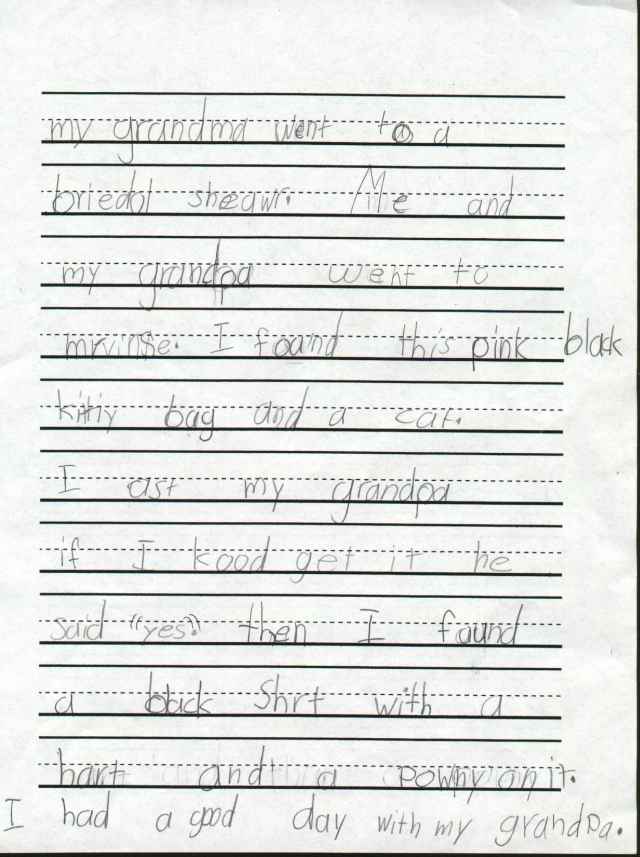 my grandma went to a
briedol sheawr. Me and
my grandpa went to
mrvinse. I foand this pink black
kitiy bag and a cat.
I ast my grandpa
if I kood get it he
said "yes" then I faund
a black Shrt with a
hart and a powny on it.
I had a good day with my grandpa.